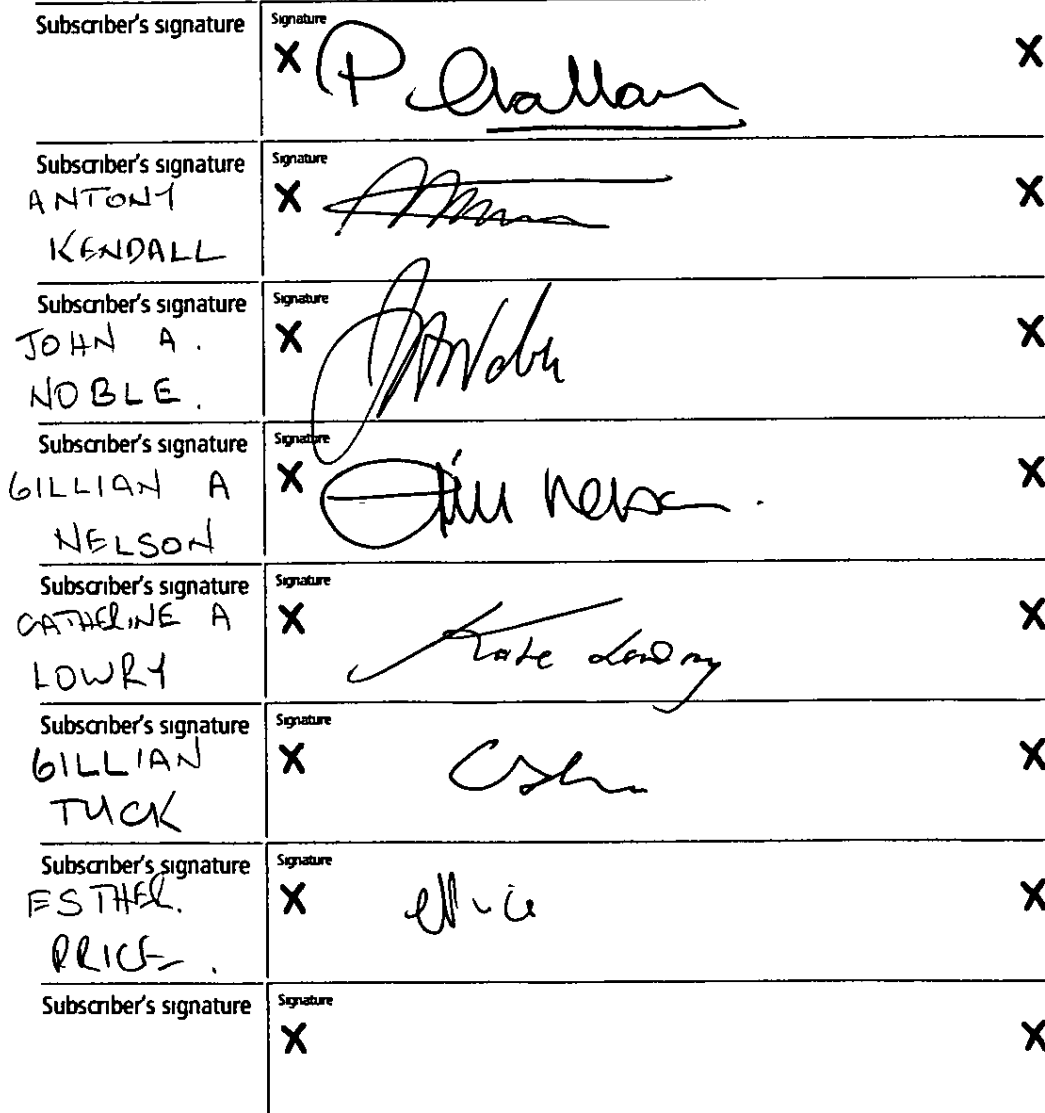 Subscriber's signature
Signature
X X
Subscriber's signature
ANTONY
KENDALL
Signature
X X
Subscriber's signature
JOHN A.
NOBLE.
Signature
X X
Subscriber's signature
GILLIAN A
NELSON
Signature
X Gill Nelson. X
Subscriber's signature
CATHERINE A
LOWRY
Signature
X Kate Lowry X
Subscriber's signature
GILLIAN
TUCK
Signature
X X
Subscriber's signature
ESTHER.
PRICE.
Signature
X X
Subscriber's signature
Signature
X X